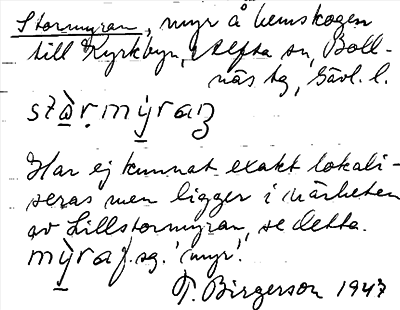 Stormyran, myr å hemskogen
till Kyrkbyn, Alfta sn, Boll-
näs tg, Gävl. l.
stɷ̀ṛmỳraƞ
Har ej kunnat exakt lokali-
seras men ligger i närheten
av Lillstormyran, se detta.
mỳra f. sg. 'myr'.
T. Birgerson 1947